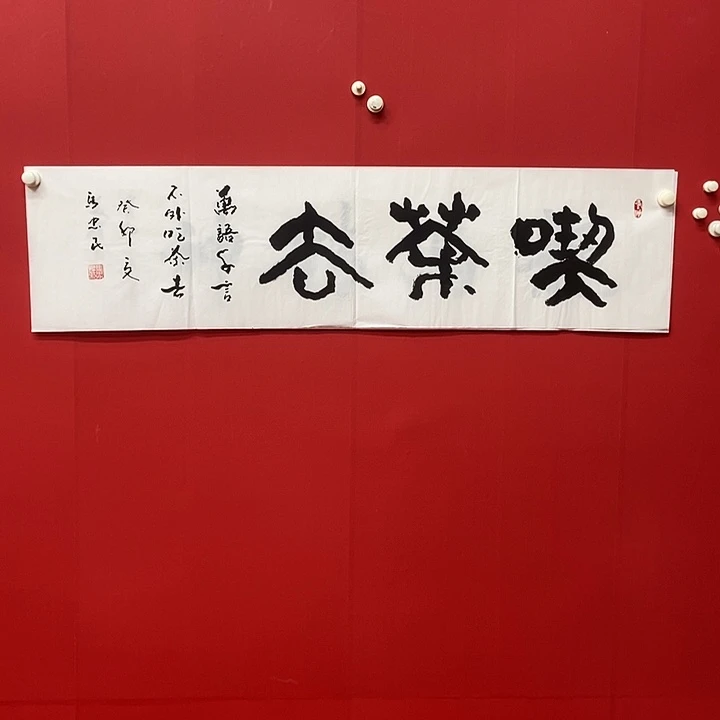 喫茶去
萬語千言
不外吃茶去
癸卯夏
馬忠民